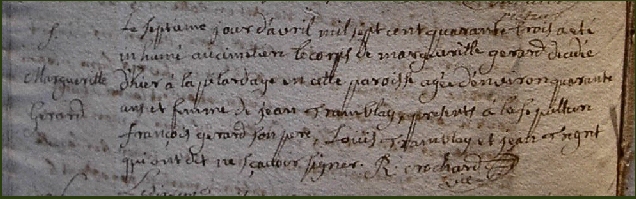 S.
Marguerille
Gerard
Le septieme jour d'avril mil sept cent quarante trois a été
inhumé au cimetiere le corps de marguerille gerard decedée
d'hier à la petardaye en cette paroisse agée d'environ quarante
ans et femme de jean Tramblay, presents à la sepulture
françois gerard son pere, Louis Tramblay et jean
qui ont dit ne sçavoir signer. R. crochard